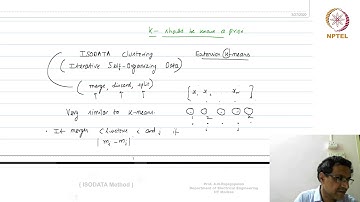 K- should be known a priori
NPTEL
ISODATA clustering Extension K-means
( Iterative Self-Organizing Data)
( merge, discard, split)
Very similar to k-means
• It merges clusters i and j if
| mi - mj |
( ISODATA Method )